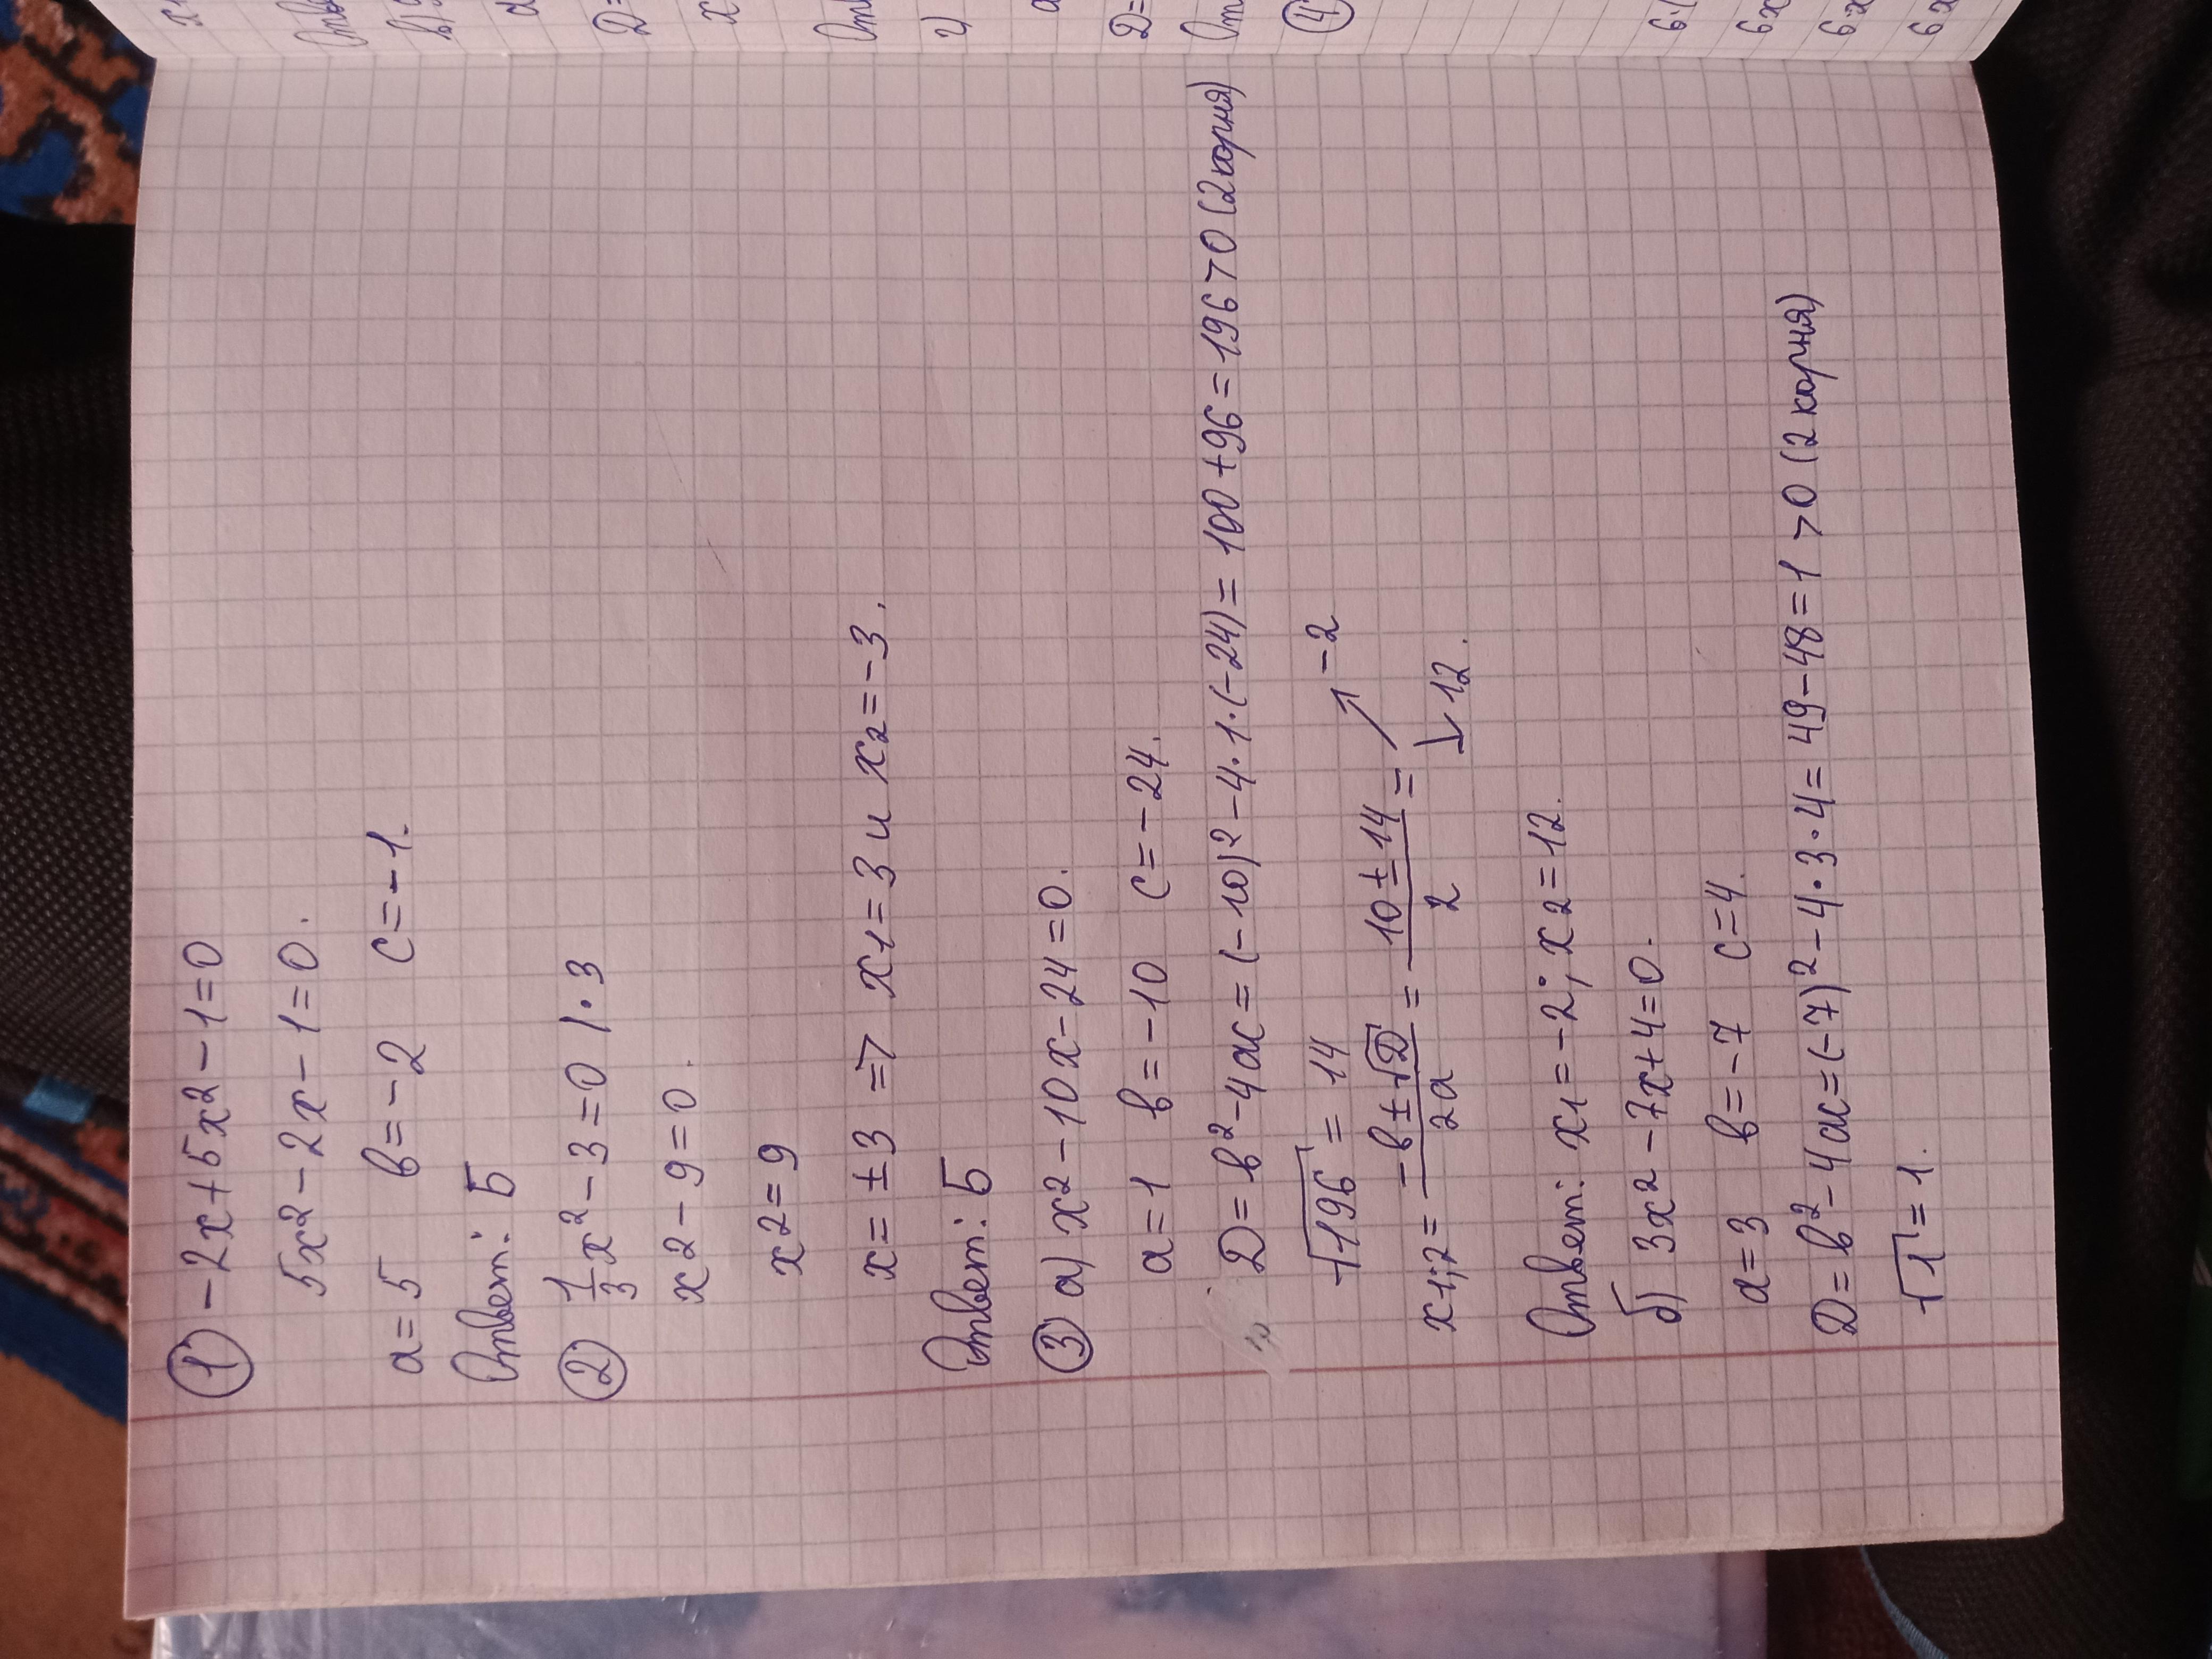 ① -2x+5x²-1=0
5x²-2x-1=0.
a=5 в=-2 c=-1.
Ответ: Б
② 1/3x²-3=0 /·3
x²-9=0.
x²=9
x=±3 => x₁=3 и x₂=-3.
Ответ: Б
③ а) x²-10x-24=0.
a=1 в=-10 c=-24.
Д=в²-4ac=(-10)²-4·1·(-24)=100+96=196>0 (2 корня)
√196=14
x₁;₂=(-в±√Д)/2a=(10±14)/2= ↗-2 ↘12.
Ответ: x₁=-2; x₂=12.
б) 3x²-7x+4=0.
a=3 в=-7 c=4.
Д=в²-4ac=(-7)²-4·3·4=49-48=1>0 (2 корня)
√1=1.
a
Д=
x
г)
a
Д=
④
6x
6x